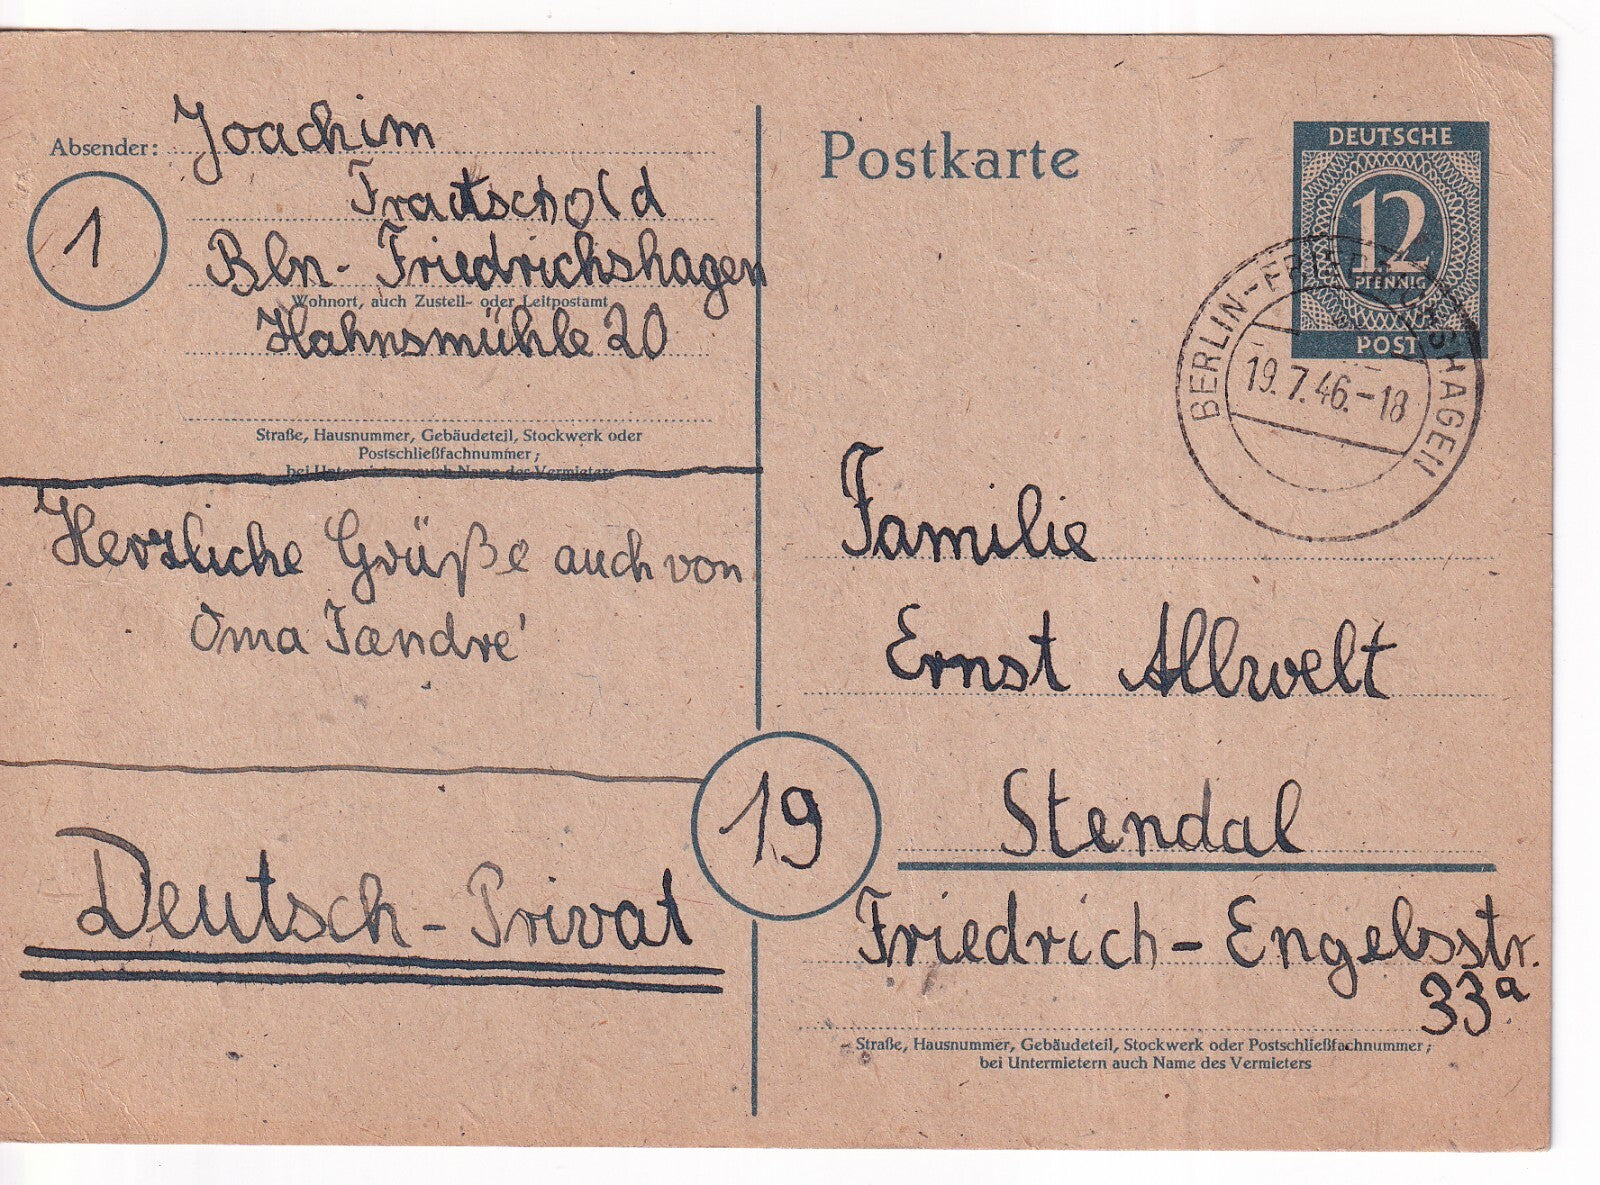 Absender: Joachim
Fratscho(d
Bln-Friedrichshagen
Wohnort, auch Zustell- oder Leitpostamt
Hahnsmühle 20
1
Straße, Hausnummer, Gebäudeteil, Stockwerk oder
Postschließfachnummer;
bei Untermietern auch Name des Vermieters
Herzliche Grüße auch von
Oma Jandré
Deutsch-Privat
Postkarte
DEUTSCHE
12
PFENNIG
POST
BERLIN-FRIEDRICHSHAGEN
19.7.46.-18
Familie
Ernst Allwelt
19
Stendal
Friedrich-Engelsstr.
33a
Straße, Hausnummer, Gebäudeteil, Stockwerk oder Postschließfachnummer;
bei Untermietern auch Name des Vermieters